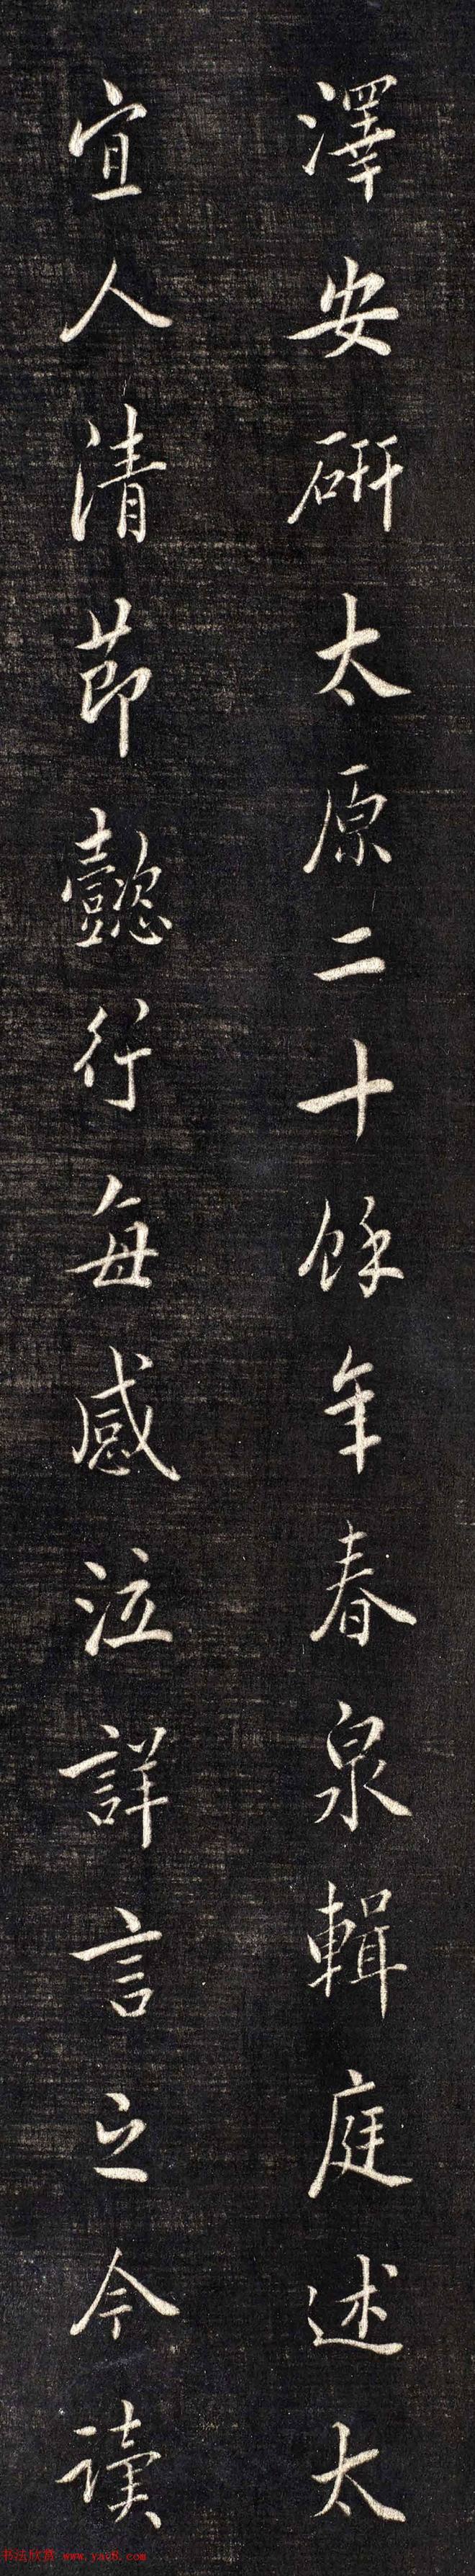 澤安硏太原二十餘年春泉輯庭述太
宜人清節懿行每感泣詳言之今讀
书法欣赏 www.yac8.com